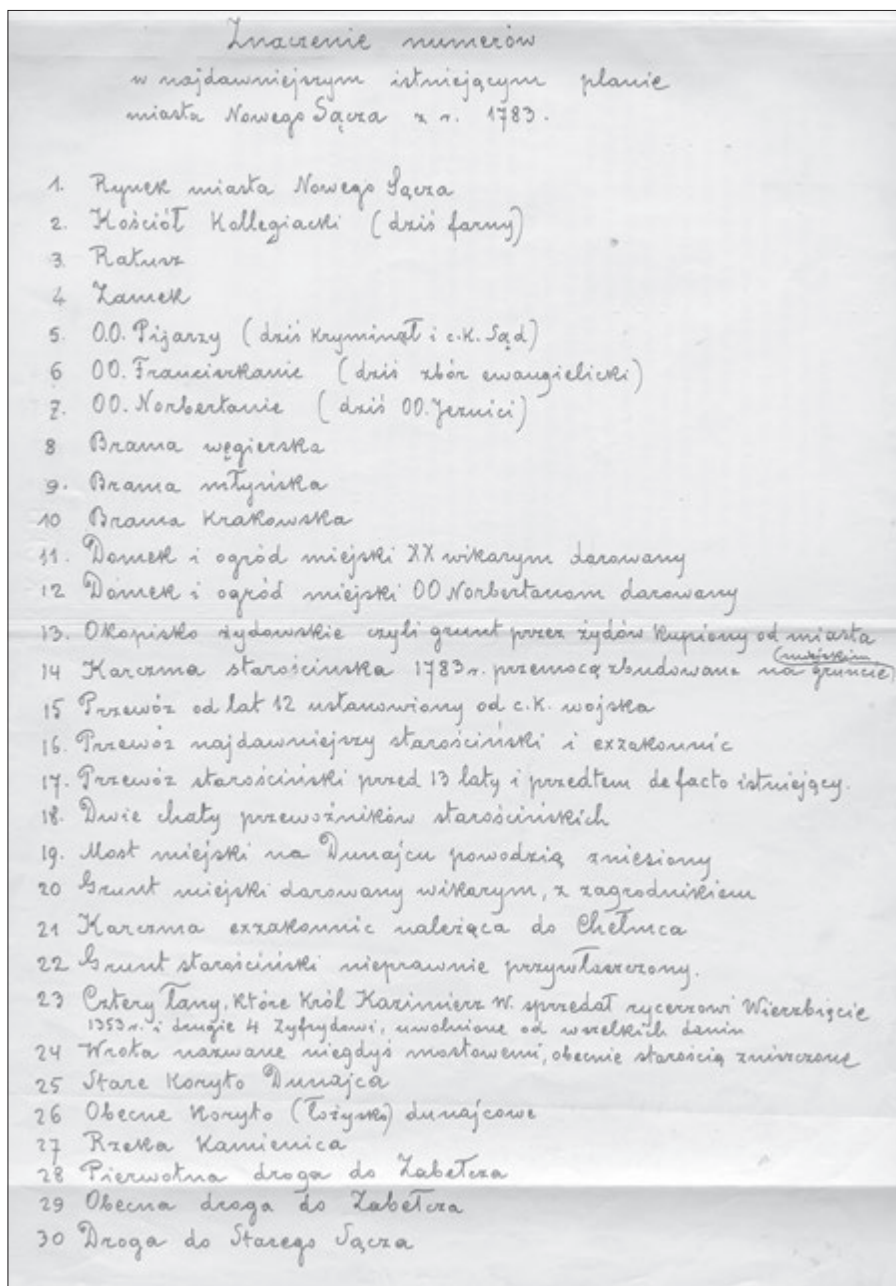 Znaczenie numerów
w najdawniejszym istniejącym planie
miasta Nowego Sącza z r. 1783.
1. Rynek miasta Nowego Sącza
2. Kościół Kollegiacki (dziś farny)
3. Ratusz
4 Zamek
5. O.O. Pijarzy (dziś Kryminał i c.K. Sąd)
6 OO. Franciszkanie (dziś zbór ewangielicki)
7. OO. Norbertanie (dziś OO. Jezuici)
8 Brama węgierska
9. Brama młyńska
10 Brama Krakowska
11. Domek i ogród miejski XX wikarym darowany
12 Domek i ogród miejski OO Norbertanom darowany
13. Okopisko żydowskie czyli grunt przez żydów Kupiony od miasta
14 Karczma starościńska 1783 r. przemocą zbudowana na gruncie (miejskim)
15 Przewóz od lat 12 ustanowiony od c.K. wojska
16. Przewóz najdawniejszy starościński i exzakonnic
17. Przewóz starościński przed 13 laty i przedtem de facto istniejący.
18. Dwie chaty przewoźników starościńskich
19. Most miejski na Dunajcu powodzią zniesiony
20 Grunt miejski darowany wikarym, z zagrodnikiem
21 Karczma exzakonnic należąca do Chełmca
22 Grunt starościński nieprawnie przywłaszczony.
23 Cztery łany, które Król Kazimierz W. sprzedał rycerzowi Wierzbięcie
1353 r. i drugie 4 Zyfrydowi, uwolnione od wszelkich danin
24 Wrota nazwane niegdyś mostowemi, obecnie starością zniszczone
25 Stare Koryto Dunajca
26 Obecne Koryto (łożysko) dunajcowe
27 Rzeka Kamienica
28 Pierwotna droga do Zabełcza
29 Obecna droga do Zabełcza
30 Droga do Starego Sącza